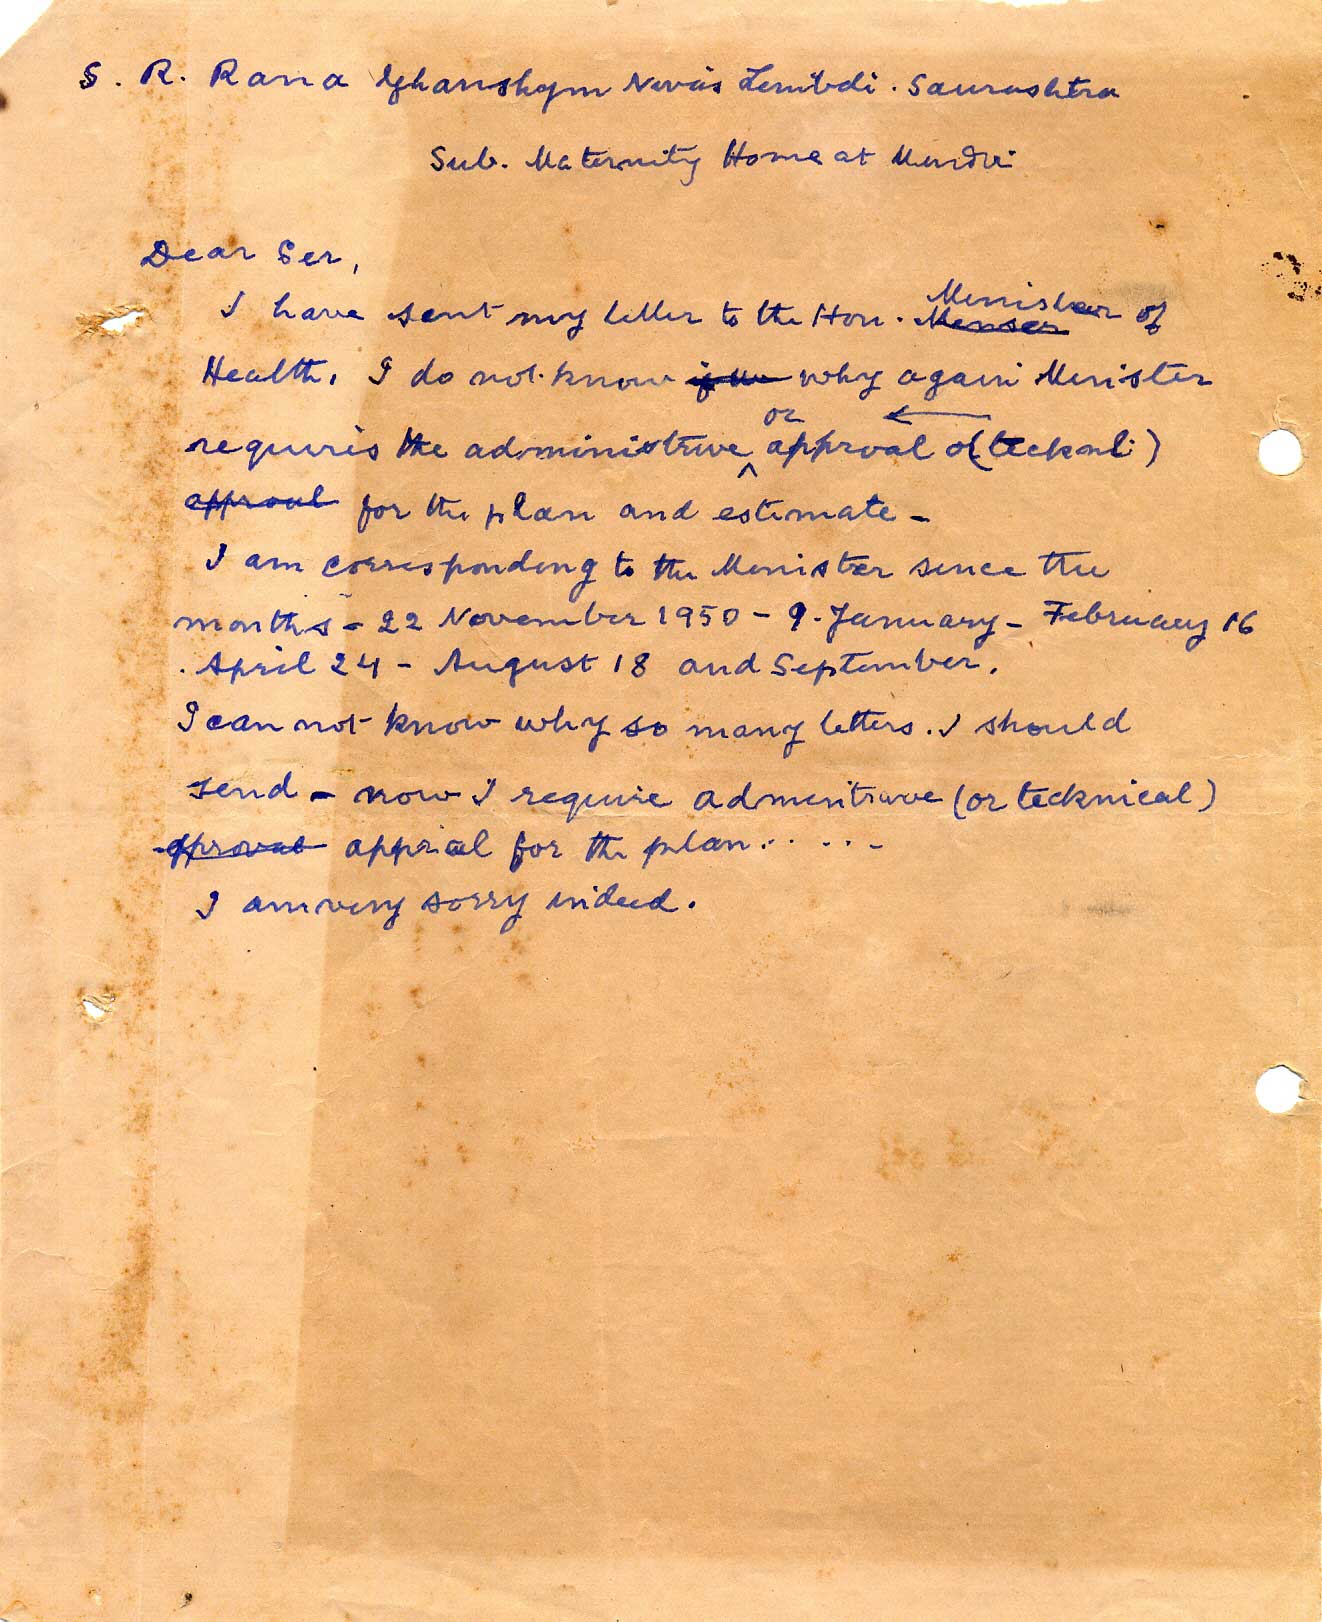 S. R. Rana Ghanshyam Nevás Lembdi. Saurashtra
Sub. Maternity Home at
Dear Ser,
I have sent my letter to the Hon. Menser Menister of
Health. I do not know why again Menister
requires the administrive or approval of (tecknl:)
approul for the plan and estimate -
I am corresponding to the Menister sence the
months - 22 November 1950 - 9. January - February 16
. April 24 - August 18 and September.
I can not know why so many letters. I should
send - now I require admentrave (or tecknical)
aproval apprial for the plan. . . . . -
I am very sorry indeed.